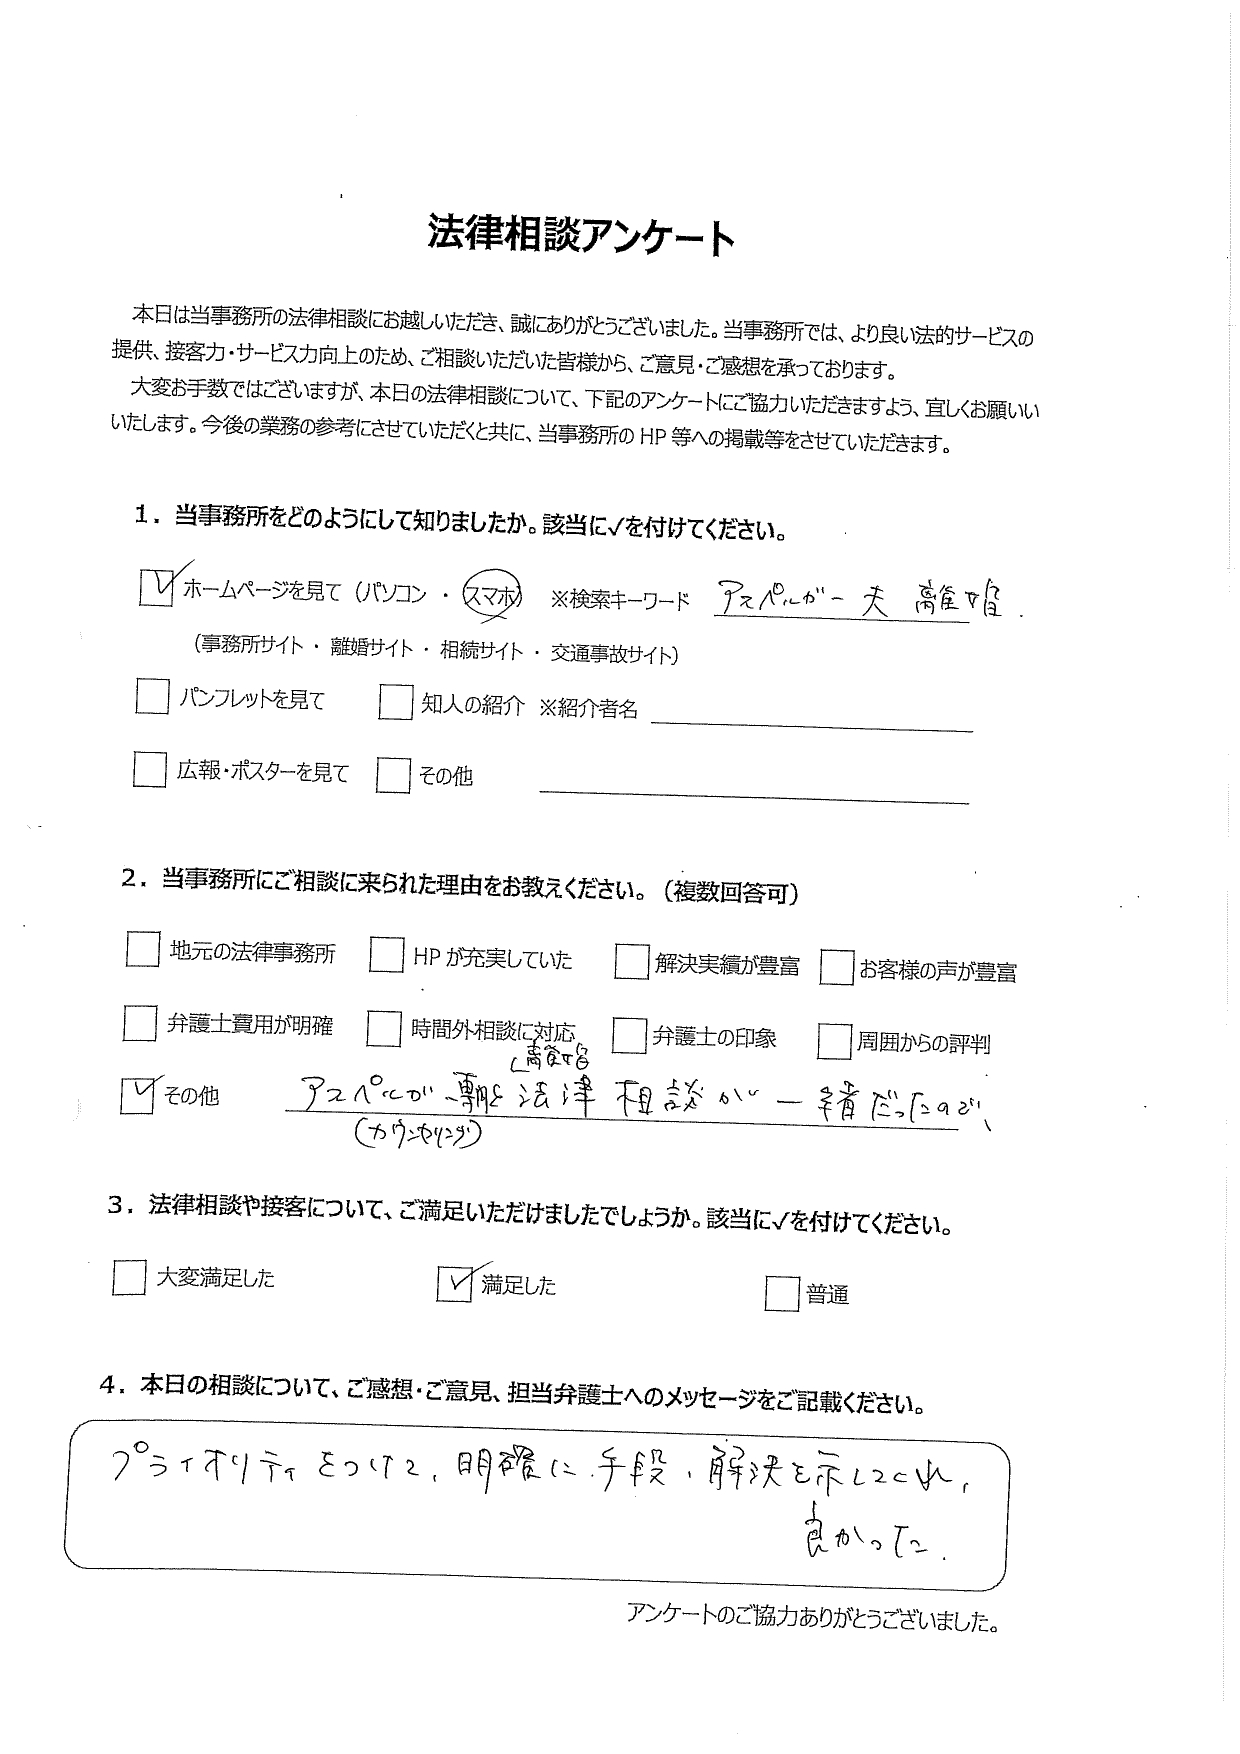 法律相談アンケート
本日は当事務所の法律相談にお越しいただき、誠にありがとうございました。当事務所では、より良い法的サービスの
提供、接客力・サービス力向上のため、ご相談いただいた皆様から、ご意見・ご感想を承っております。
大変お手数ではございますが、本日の法律相談について、下記のアンケートにご協力いただきますよう、宜しくお願いい
いたします。今後の業務の参考にさせていただくと共に、当事務所の HP 等への掲載等をさせていただきます。
1．当事務所をどのようにして知りましたか。該当に✓を付けてください。
☑ ホームページを見て（パソコン ・ スマホ） ※検索キーワード アスペルガー 夫 離婚.
（事務所サイト ・ 離婚サイト ・ 相続サイト ・ 交通事故サイト）
□ パンフレットを見て □ 知人の紹介 ※紹介者名
□ 広報・ポスターを見て □ その他
2．当事務所にご相談に来られた理由をお教えください。（複数回答可）
□ 地元の法律事務所 □ HP が充実していた □ 解決実績が豊富 □ お客様の声が豊富
□ 弁護士費用が明確 □ 時間外相談に対応 □ 弁護士の印象 □ 周囲からの評判
離婚
☑ その他 アスペルガー専門と法律相談が一緒だったので、
（カウンセリング）
3．法律相談や接客について、ご満足いただけましたでしょうか。該当に✓を付けてください。
□ 大変満足した ☑ 満足した □ 普通
4．本日の相談について、ご感想・ご意見、担当弁護士へのメッセージをご記載ください。
プライオリティをつけて、明確に手段、解決を示してくれ、
良かった.
アンケートのご協力ありがとうございました。